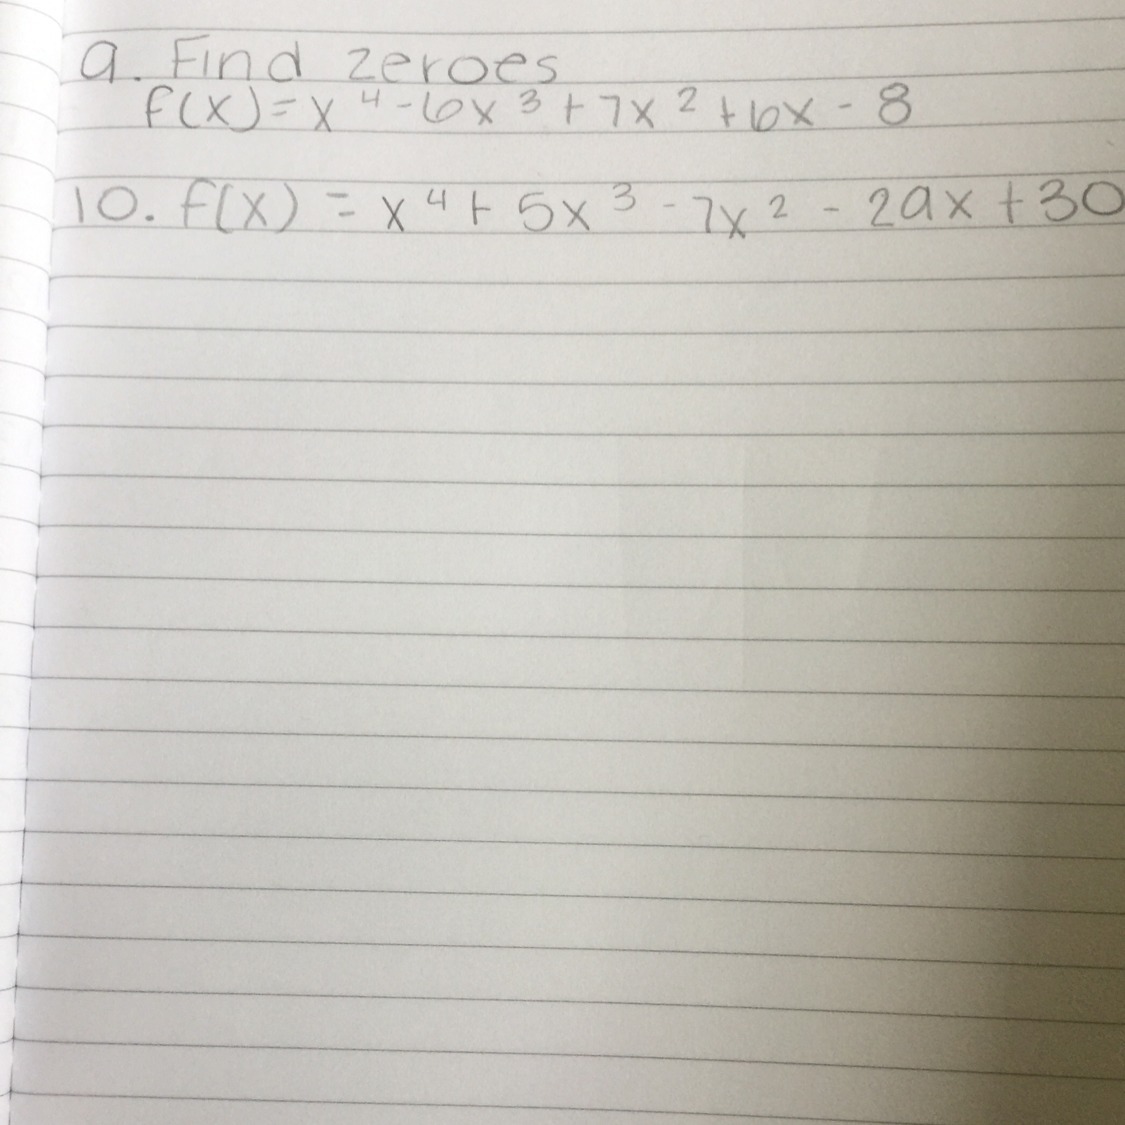 9. Find zeroes
f(x)=x⁴-6x³+7x²+6x-8
10. f(x) = x⁴+ 5x³-7x²-29x+30